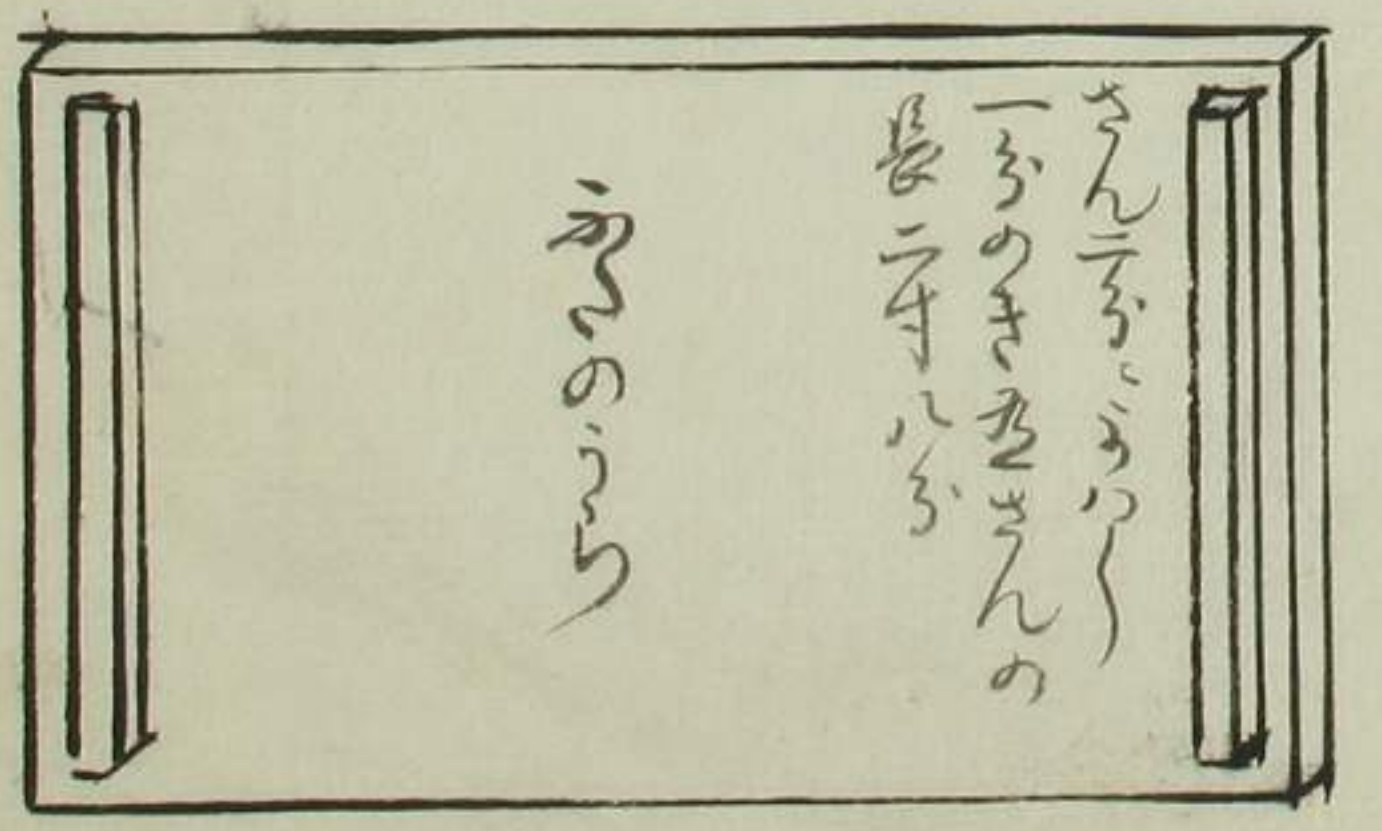 さん二分ニ
一分のき さんの
長二寸八分
ふたのうら